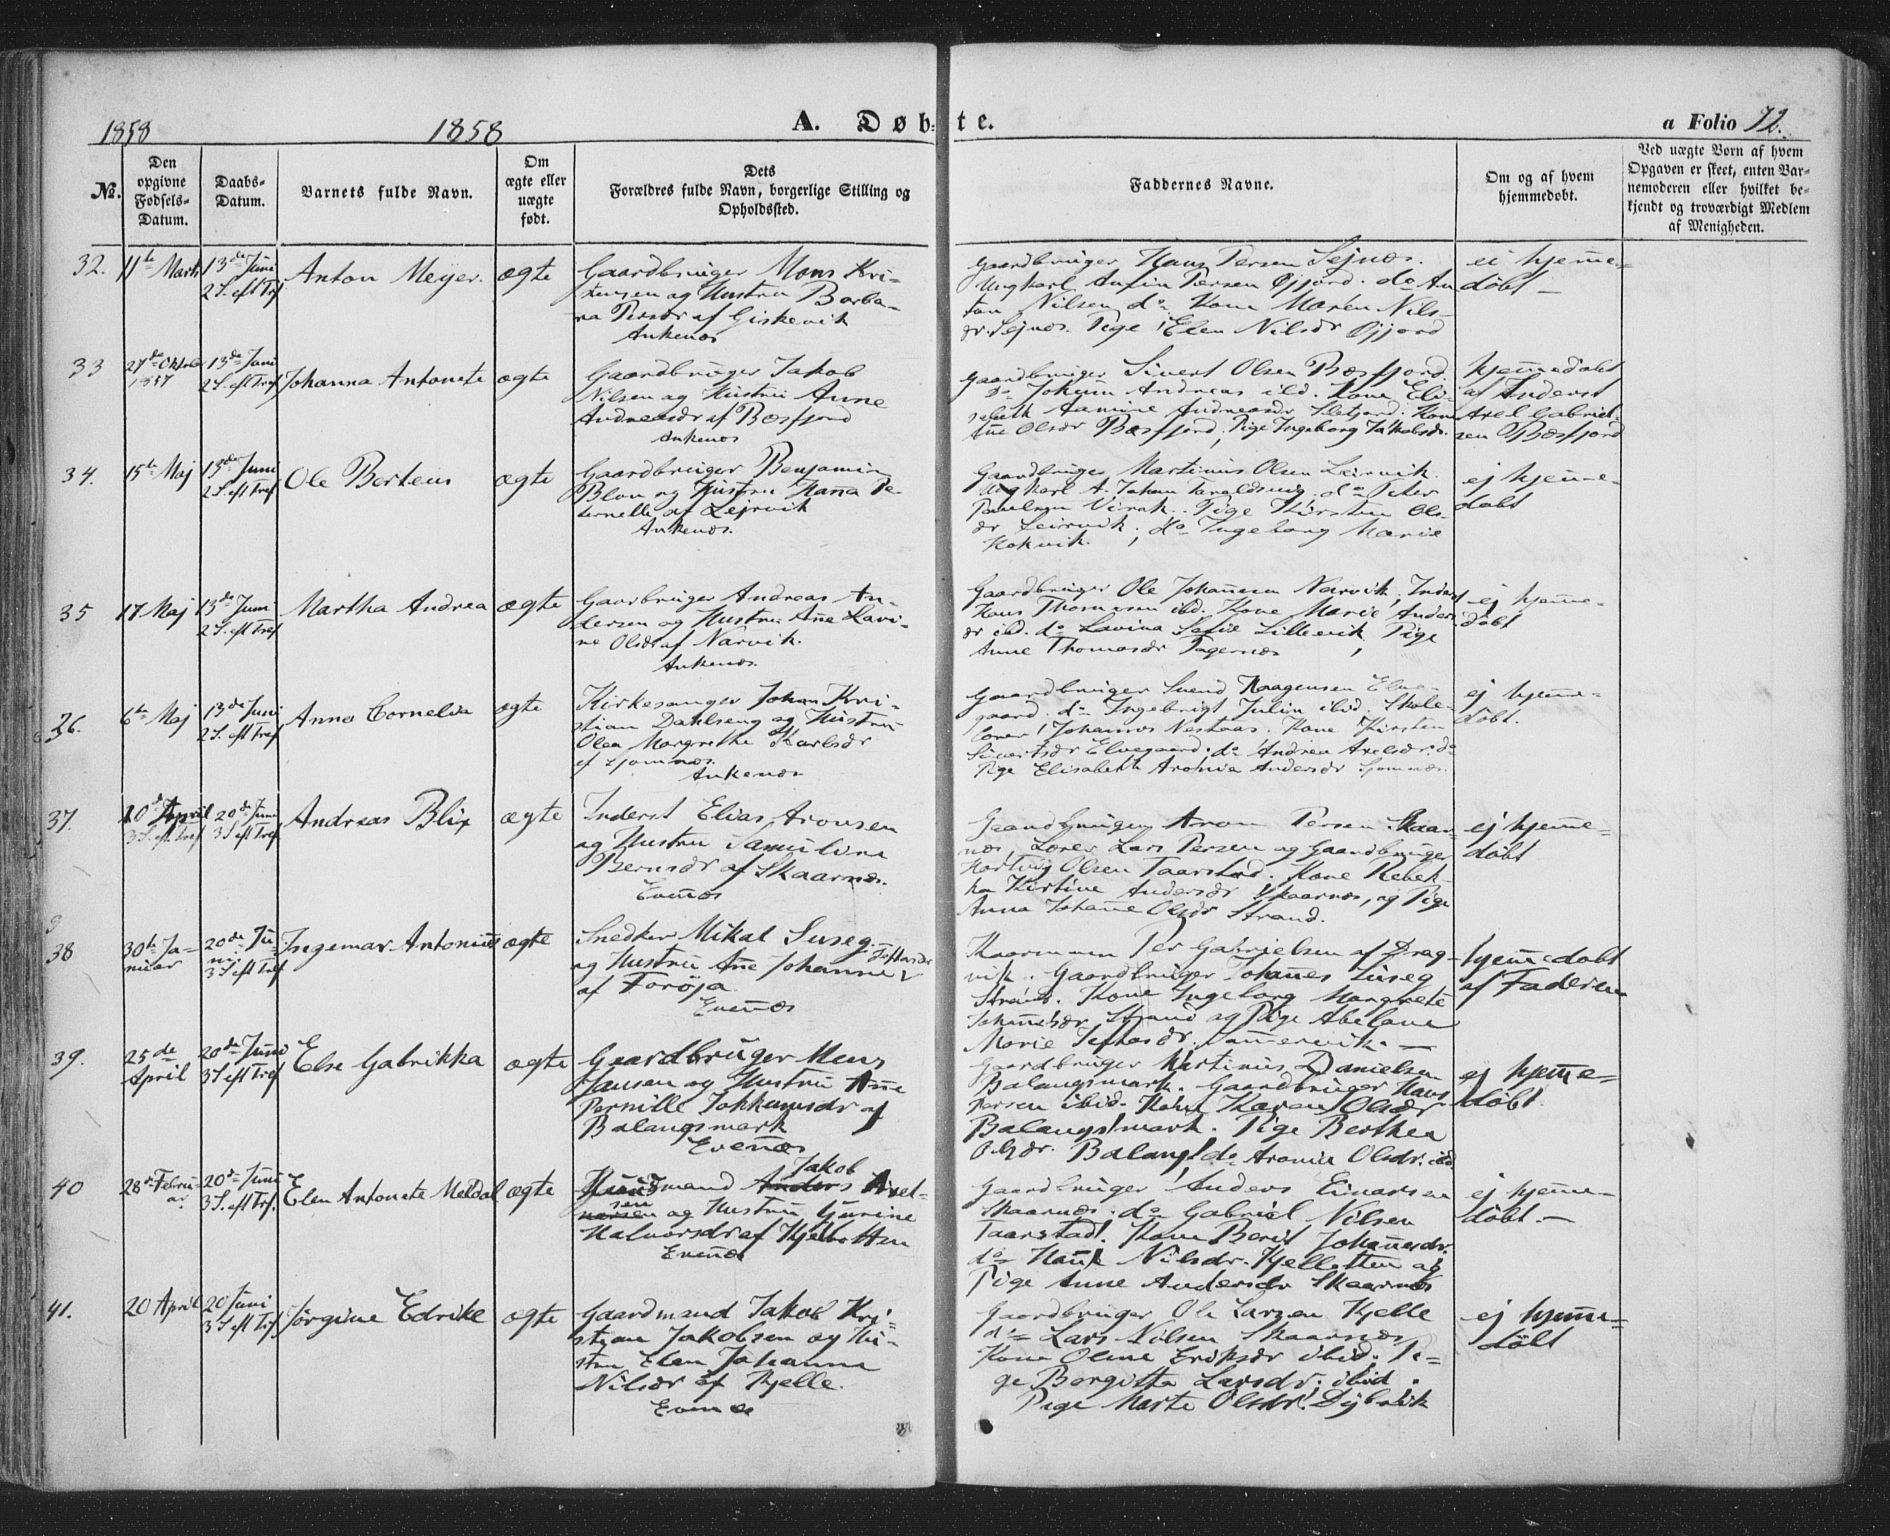 1858
1858
A. Døbte.
a Folio 72.
No.
Den opgivne Fødsels-Datum.
Daabs-Datum.
Barnets fulde Navn.
Om ægte eller uægte født.
Dets Forældres fulde Navn, borgerlige Stilling og Opholdssted.
Faddernes Navne.
Om og af hvem hjemmedøbt.
Ved uægte Børn af hvem Opgaven er skeet, enten Barnemoderen eller hvilket bekjendt og troværdigt Medlem af Menigheden.
32.
11te Marts
13de Juni
2 S. eft Tref
Anton Meyer.
ægte
Gaardbruger Mons Kri-
stensen og Hustru Barba-
ra Persdr af Giskevik
Ankenæs
Gaardbruger Hans Persen Sejnæs.
Ungkarl Anfin Persen Øjjord. do An
ton Nilsen do Kone Maren Nils-
dr Sejnæs. Pige Elen Nilsdr Øjjord
ei hjemme-
døbt
33
27de Oktober
1857
13de Juni
2 S. eft Tref
Johanna Antonete
ægte
Gaardbruger Jakob
Nilsen og Hustru Anne
Andreasdr af Bæsfjord
Ankenæs
Gaardbruger Sivert Olsen Bæsfjord
do Johan Andreas ibd. Kone Eli-
sabeth Andreasdr Kone
Ane Olsdr Bæsfjord, Pige Ingeborg Jakobsdr.
hjemmedøbt
af Inderst
Axel Gabriel-
sen Bæsfjord
34.
15te Maj
13de Juni
2 S. eft Tref
Ole Berteus
ægte
Gaardbruger Benjamin
Blom og Hustru Hanna Pe-
ternelle af Lejrvik
Ankenæs.
Gaardbruger Martinus Olsen Leirvik.
Ungkarl A. Johan do Peter
Paulsen Pige Kirsten Ols-
dr Leirvik, do Ingeborg Marie
Kokvik.
ej hjemme-
døbt
35
17 Maj
13de Juni
2 S. eft Tref
Martha Andrea
ægte
Gaarbruger Andreas An-
dersen og Hustru Ane Lavi-
ne Olsdr af Narvik.
Ankenæs.
Gaardbruger Ole Johannesen Narvik, Inderst
Hans Thomasen ibd. Kone Marie Anders
dr ibd. do Lavina Sofie Lillevik, Pige
Anne Thomasdr Fagernæs
ej hjemme-
døbt
36.
6te Maj
13de Juni
2 S. eft Tref
Anna Cornelia
ægte
Kirkesanger Johan Kri-
stian Dahlseng og Hustru
Olea Margrethe Karlsdr
af Sjomnæs.
Ankenæs
Gaardbruger Svend Haagensen Elve-
gaard. do Ingebrigt Julin ibid. Skole-
lærer Johannes Nestaas. Kone Kirsten
Sivertsdr Elvegaard. do Andrea Axelsdr do
Pige Elisabeth Aronia Andersdr Sjomnæs.
ej hjemme-
døbt.
37.
10de April
3 S. eft Tref
20de Juni
3 S. eft Tref
Andreas Blix
ægte
Inderst Elias Aronsen
og Hustru Samuline
Bernsdr af Skaarnæs.
Evenæs
Gaardbruger Aron Persen Skaar-
næs, Lærer Lars Persen og Gaardbruger
Hartvig Olsen Taarstad. Kone Rebek-
ka Kirstine Andersdr Skaarnæs, og Pige
Anna Johanne Olsdr Strand.
ej hjemme-
døbt
38
30te Ja-
nuar
20de Ju-
ni
3 S. eft Tref
Ingemar Antonius
ægte
Snedker Mikal Suseg
og Hustru Ane Johanne
af Forøja.
Evenæs
Kaarmann Per Gabrielsen af Dræg-
vik. Gaardbruger Johannes Suseg
Strand. Kone Ingeborg Margrete
Johannesdr Strand og Pige Abelone
Marie
hjemmedøbt
af Faderen
39.
25de
April
20de Juni
3 S eft Tref
Else Gabrikka
ægte
Gaardbruger Mons
Jansen og Hustru Ane
Pernille Jokkumsdr af
Balangsmark
Evenæs
Gaardbruger Martinus Danielsen
Balangsmark. Gaardbruger Hans
Persen ibid. Kone Karen Olsdr
Balangsmark. Pige Berthea
Olsdr. Balang, do Aronie Olsdr. ibd
ej hjemme-
døbt.
40
28de Febru-
ar
20de Juni
3 S. eft Tref.
Elen Antonete Meldal
ægte
Huusmand Anders Jakob Axel-
sen og Hustru Gurine
Halvorsdr af Kjelbotten
Evenæs
Gaardbruger Anders Einarsen
Skaarnæs. do Gabriel Nilsen
Taarstad. Kone Berit Johannesdr.
do Hanne Nilsdr. Kjelbotten og
Pige Anne Andersdr Skaarnæs
ej hjemme-
døbt.
41.
20 April
20 Juni
3 S eft Tref
Jørgine Edrike
ægte
Gaardmand Jakob Kri-
stian Jakobsen og Hu-
stru Elen Johanna
Nilsdr af Kjelle.
Evenæs
Gaardbruger Ole Larsen Kjelle
do Lars Nilsen Skaarnæs
Kone Oline Eriksdr ibid. Pi-
ge Bergitte Larsdr. ibid.
Pige Marte Olsdr. Dybvik
ej hjemme-
døbt